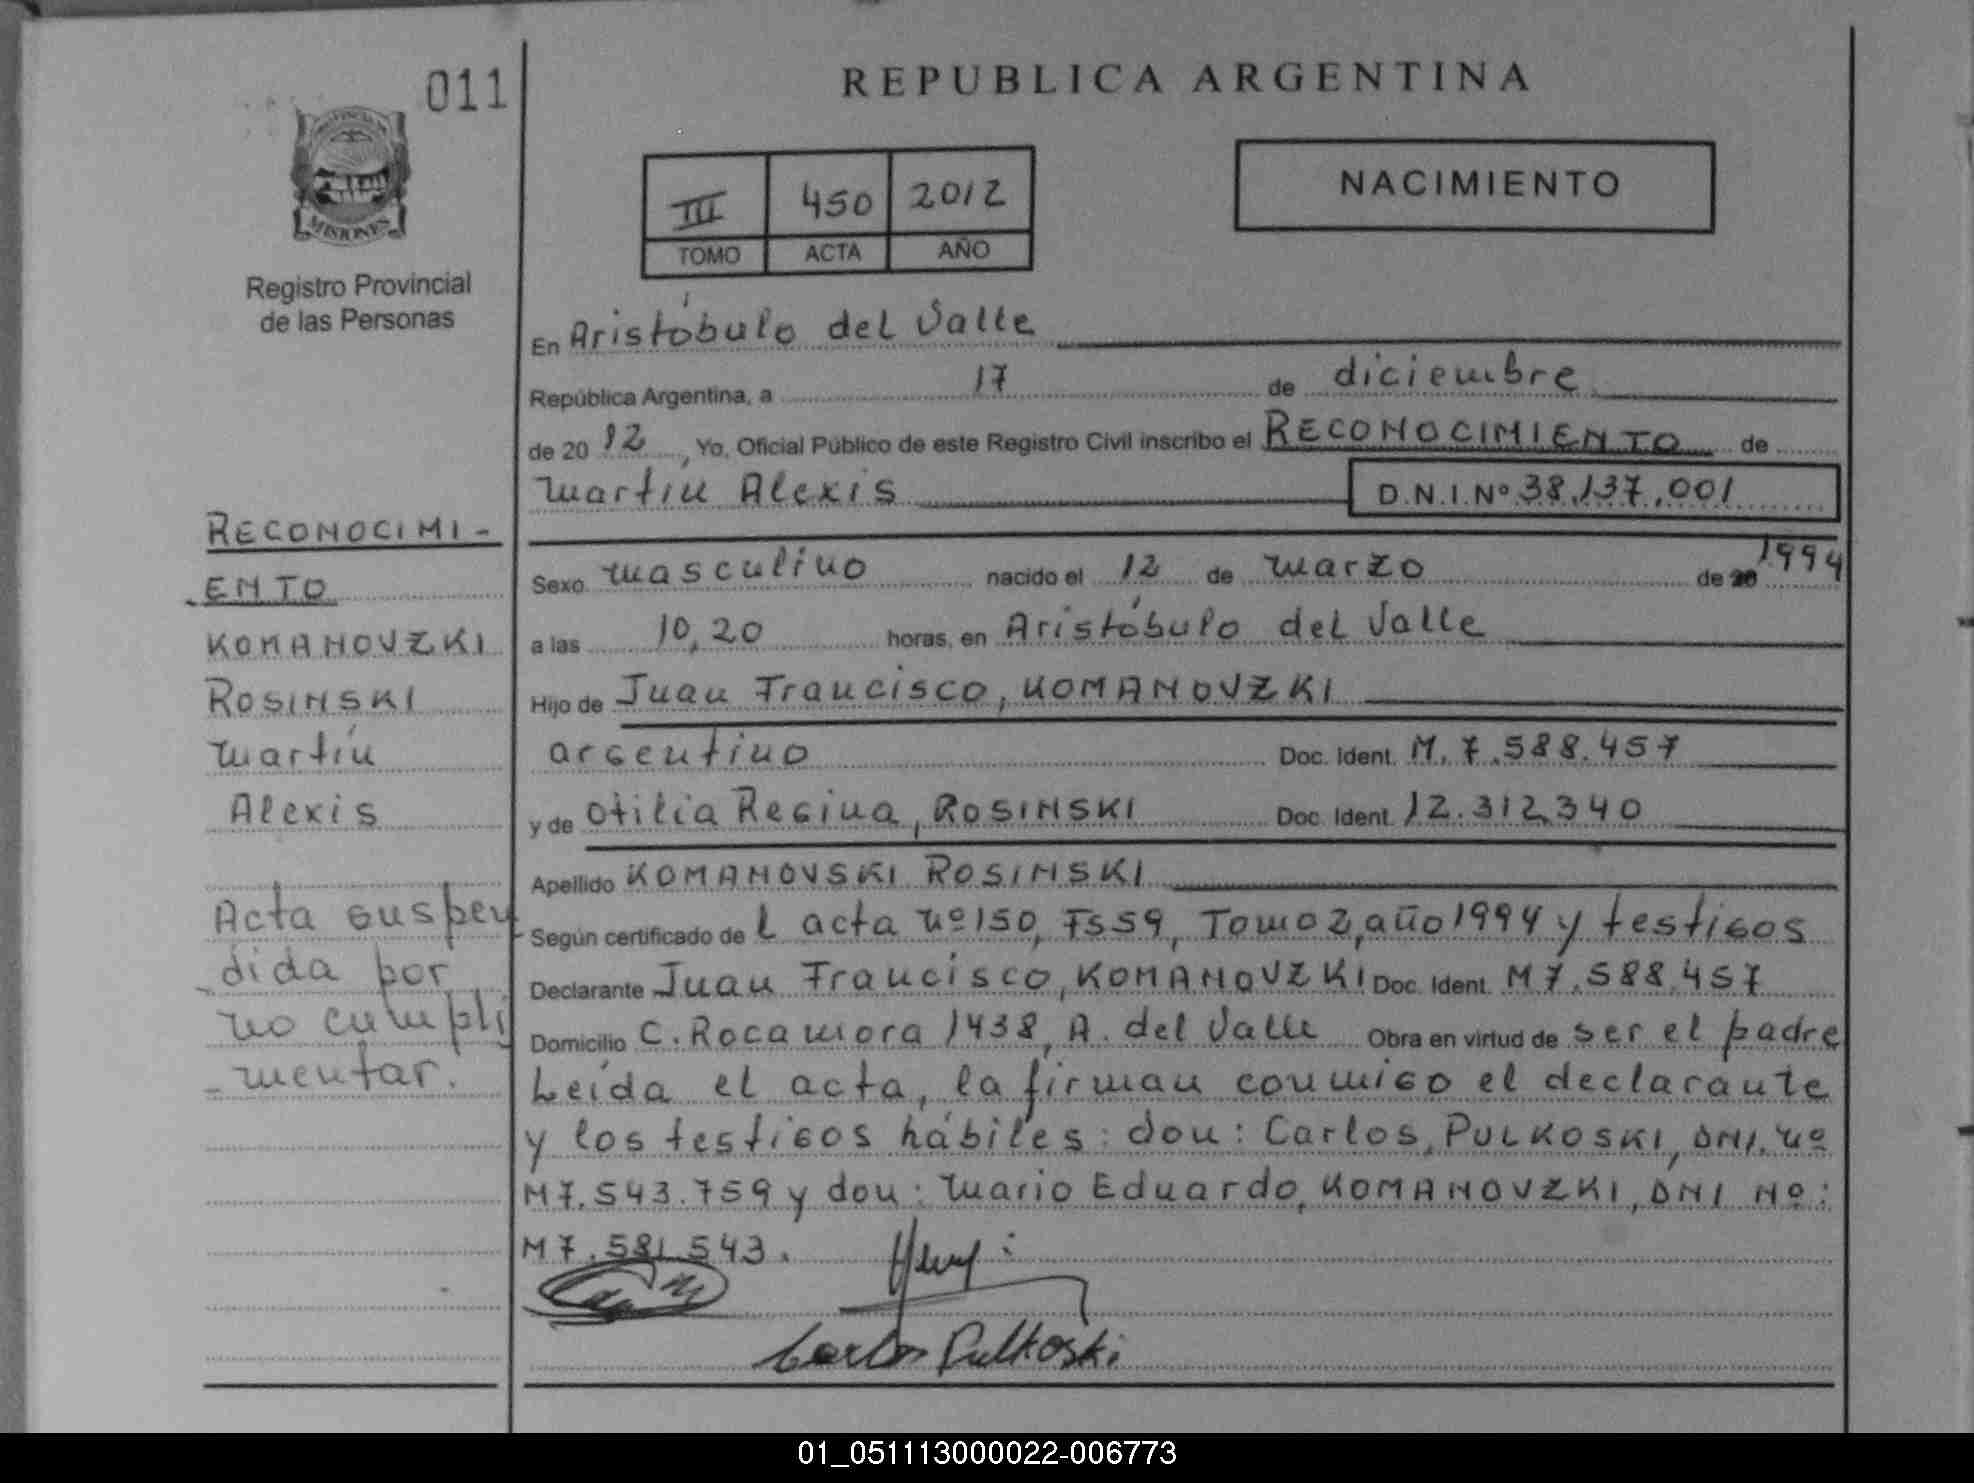 011
REPUBLICA ARGENTINA
PROVINCIA DE
MISIONES
Registro Provincial
de las Personas
III 450 2012
TOMO ACTA AÑO
NACIMIENTO
En Aristóbulo del Valle
República Argentina, a 17 de diciembre
de 20 12, Yo, Oficial Público de este Registro Civil inscribo el RECONOCIMIENTO de
Martin Alexis D.N.I.Nº 38.137.001
Sexo masculino nacido el 12 de marzo de 20 1994
a las 10,20 horas, en Aristóbulo del Valle
Hijo de Juan Francisco, KOMANOVZKI
argentino Doc. Ident. M. 7.588.457
y de Otilia Regina, ROSINSKI Doc. Ident. 12.312.340
Apellido KOMANOVSKI ROSINSKI
Según certificado de l acta nº 150, Fs 59, Tomo 2, año 1994 y testigos
Declarante Juan Francisco, KOMANOVZKI Doc. Ident. M 7.588.457
Domicilio C. Rocamora 1438, A. del Valle Obra en virtud de ser el padre
Leída el acta, la firman conmigo el declarante
y los testigos hábiles: don: Carlos, PULKOSKI, DNI. nº
M7.543.759 y don: Mario Eduardo, KOMANOVZKI, DNI Nº:
M7.581.543.
Carlos Pulkoski
RECONOCIMI-
ENTO
KOMANOVZKI
ROSINSKI
Martín
Alexis
Acta suspen
dida por
no cumpli
-mentar.
01_051113000022-006773